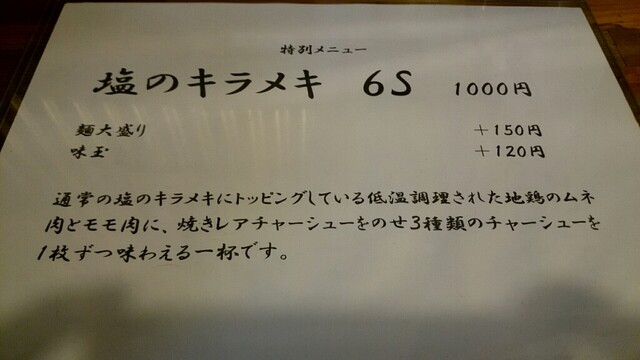 特別メニュー
塩のキラメキ 6S 1000円
麺大盛り +150円
味玉 +120円
通常の塩のキラメキにトッピングしている低温調理された地鶏のムネ
肉とモモ肉に、焼きレアチャーシューをのせ3種類のチャーシューを
1枚ずつ味わえる一杯です。